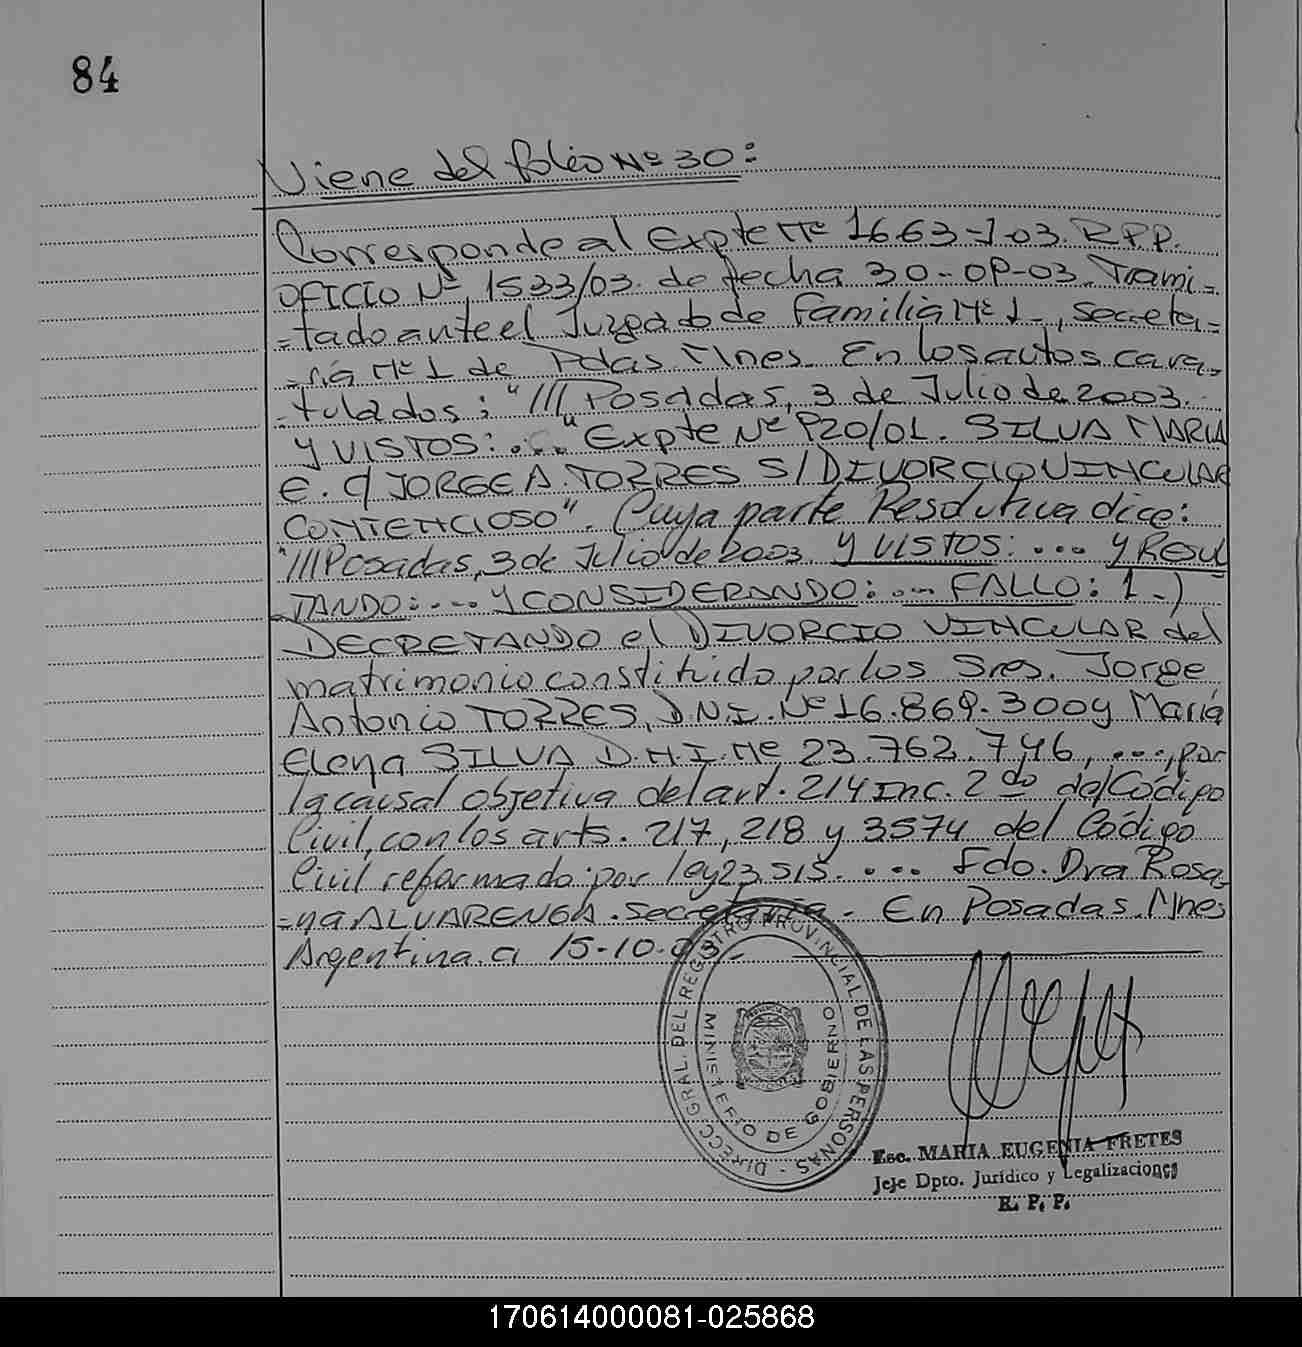 84
Viene del folio Nº 30:
Corresponde al Expte Nº 1663-J-03. R.P.P.
OFICIO Nº 1533/03. de fecha 30-09-03. Trami=
=tado ante el Juzgado de Familia Nº 1_, Secreta=
=ria Nº 1 de Pdas. Mnes. En los autos cara=
=tulados: "///Posadas, 3 de Julio de 2003.
Y VISTOS:... "Expte Nº 920/01. SILVA MARIA
E. c/ JORGE A. TORRES S/ DIVORCIO VINCULAR
CONTENCIOSO". Cuya parte Resolutiva dice:
"///Posadas, 3 de Julio de 2003. Y VISTOS: .... Y RESUL
TANDO: .... Y CONSIDERANDO: .... FALLO: 1-)
DECRETANDO el DIVORCIO VINCULAR del
matrimonio constituido por los Sres. Jorge
Antonio TORRES, D.N.I. Nº 16.869.300 y María
Elena SILVA D.N.I. Nº 23.762.746, ...., por
la causal objetiva del art. 214 Inc. 2do del Código
Civil, con los arts. 217, 218 y 3574 del Código
Civil reformado por ley 23.515. .... Fdo. Dra Rosa
=na ALVARENGA. Secretaria. En Posadas. Mnes
Argentina. a 15-10-03.
DIRECC. GRAL. DEL REGISTRO PROVINCIAL DE LAS PERSONAS -
MINISTERIO DE GOBIERNO
Esc. MARIA EUGENIA FRETES
Jefe Dpto. Jurídico y Legalizaciones
R. P. P.
170614000081-025868